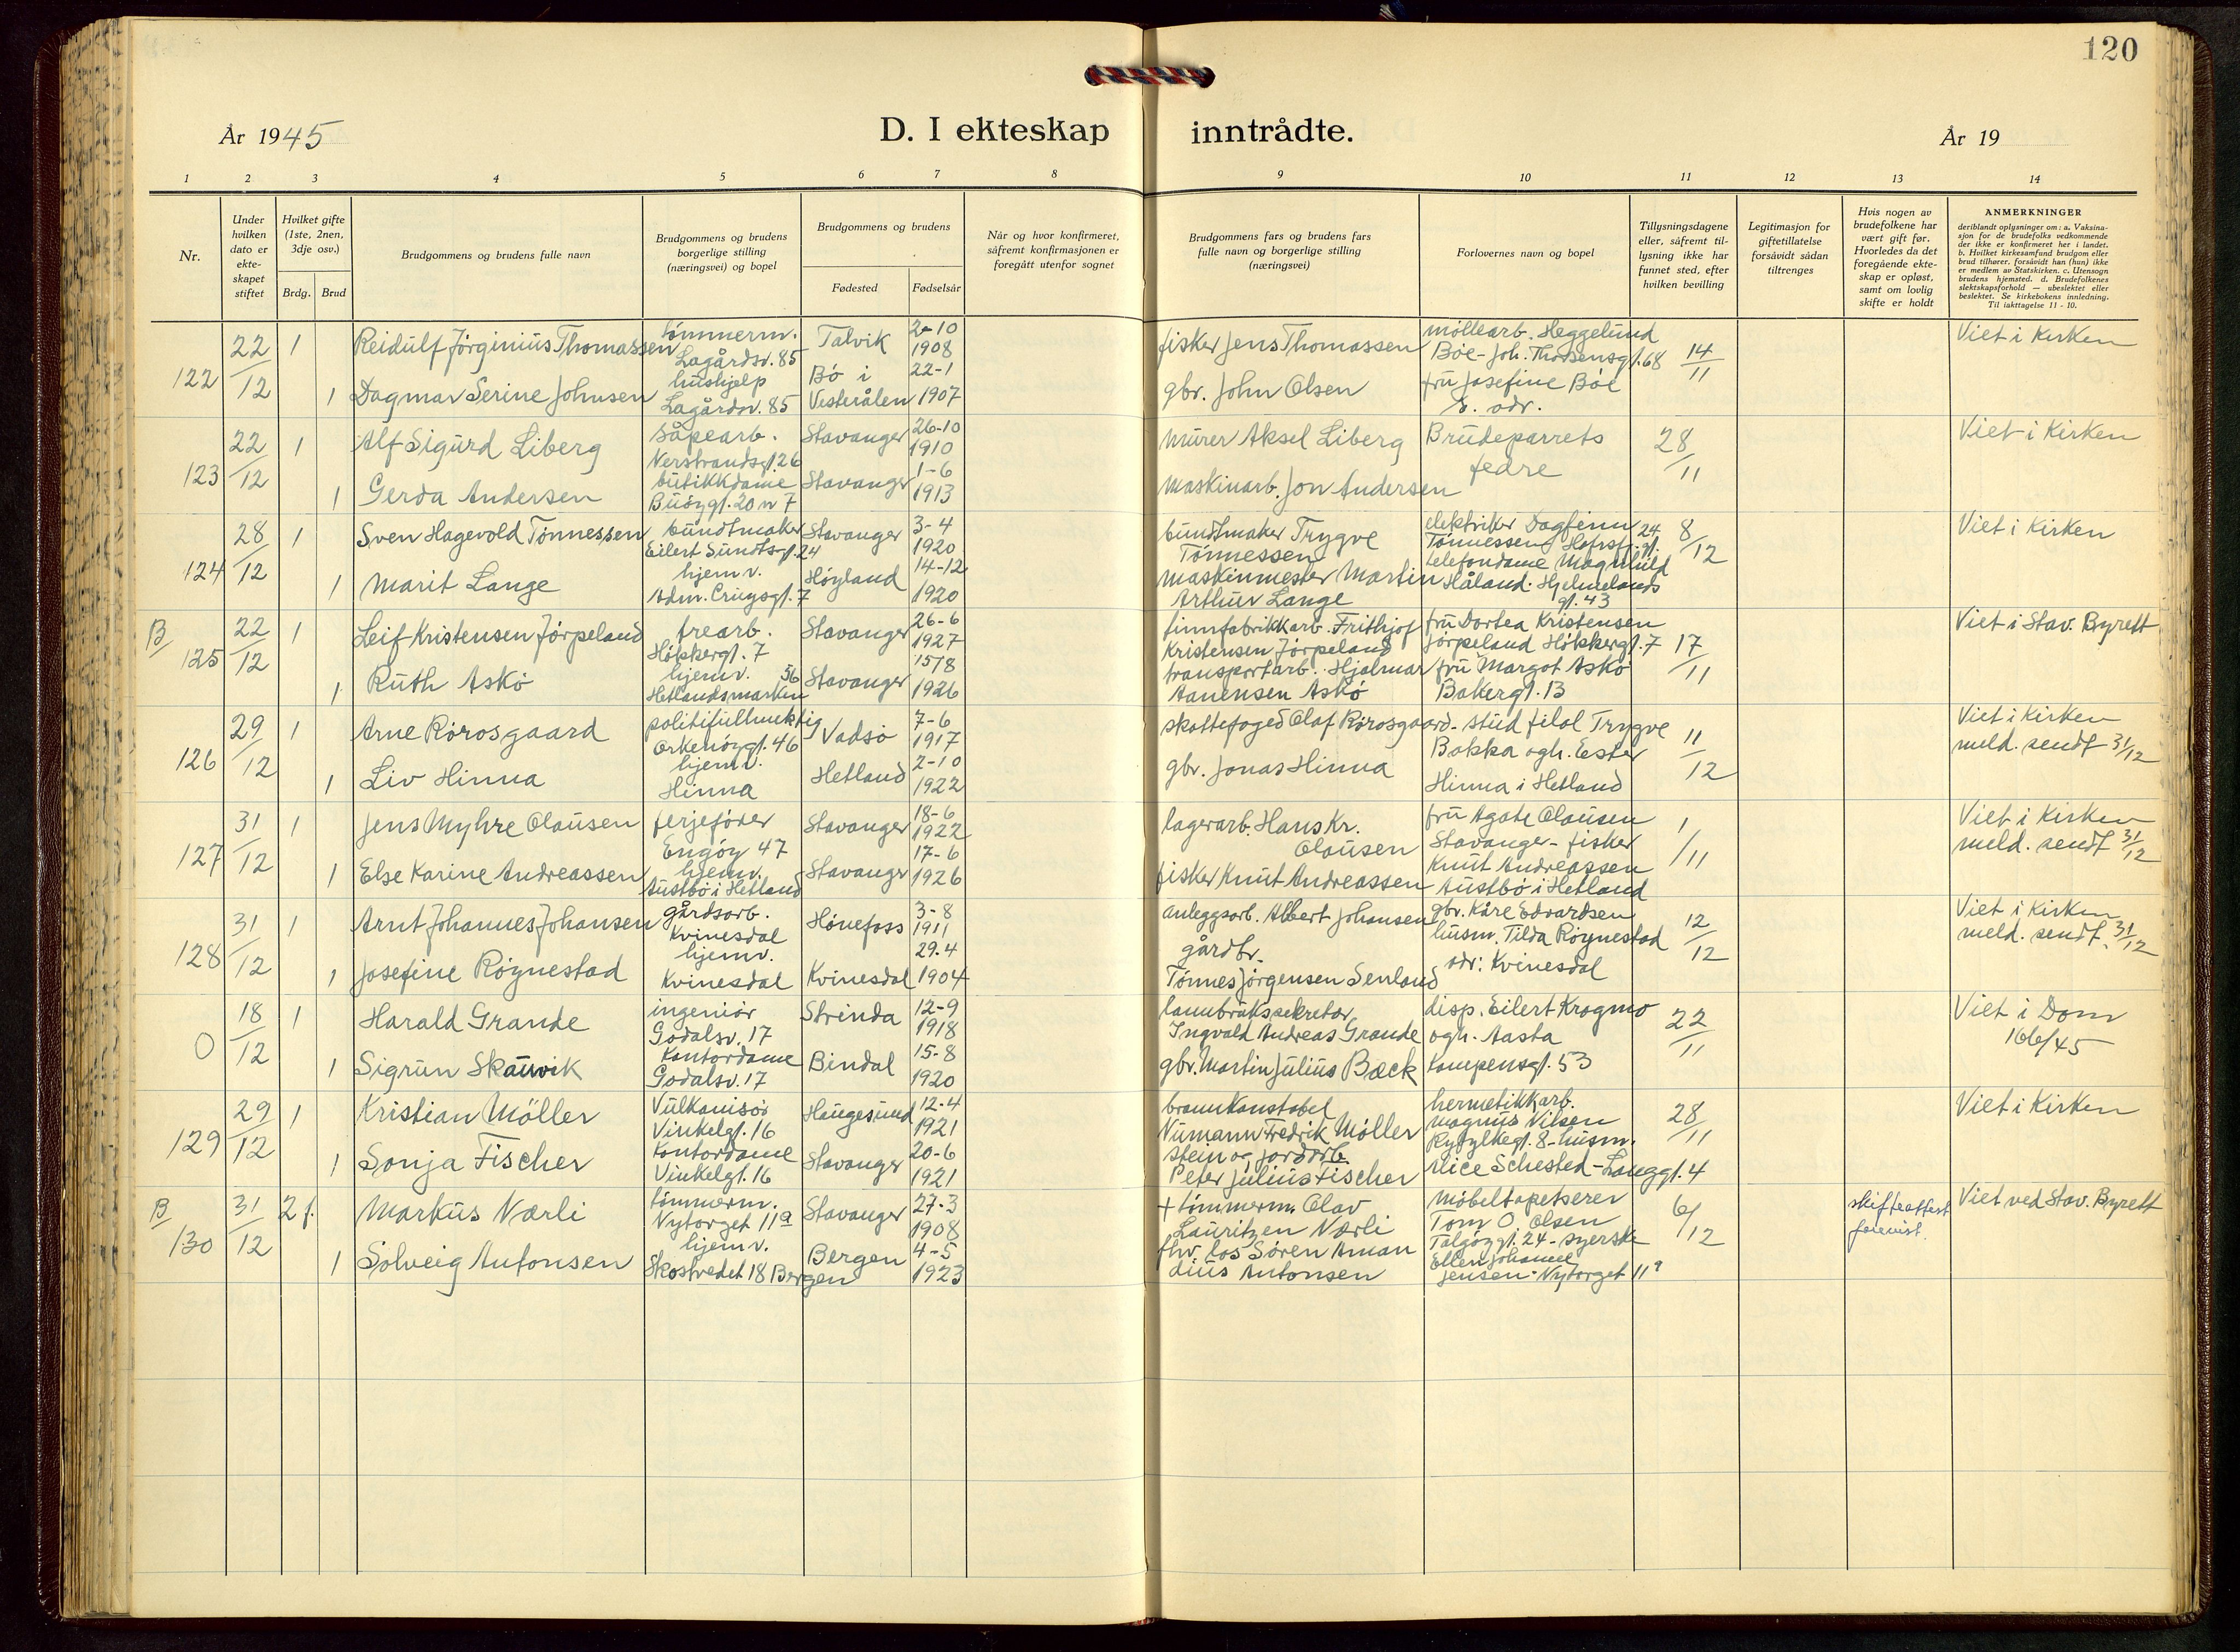 120
År 1945
D. I ekteskap inntrådte.
År 19
1 2 3 4 5 6 7 8 9 10 11 12 13 14
Nr.
Under hvilken dato er ekte-skapet stiftet
Hvilket gifte (1ste, 2nen, 3dje osv.)
Brdg. Brud
Brudgommens og brudens fulle navn
Brudgommens og brudens borgerlige stilling (næringsvei) og bopel
Brudgommens og brudens
Fødested Fødselsår
Når og hvor konfirmeret, såfremt konfirmasjonen er foregått utenfor sognet
Brudgommens fars og brudens fars fulle navn og borgerlige stilling (næringsvei)
Forlovernes navn og bopel
Tillysningsdagene eller, såfremt til-lysning ikke har funnet sted, efter hvilken bevilling
Legitimasjon for giftetillatelse forsåvidt sådan tiltrenges
Hvis nogen av brudefolkene har vært gift før. Hvorledes da det foregående ekte-skap er opløst, samt om lovlig skifte er holdt
ANMERKNINGER
deriblandt oplysninger om: a. Vaksina-sjon for de brudefolks vedkommende der ikke er konfirmeret her i landet. b. Hvilket kirkesamfund brudgom eller brud tilhører, forsåvidt han (hun) ikke er medlem av Statskirken. c. Utensogn brudens hjemsted. d. Brudefolkenes slektskapsforhold — ubeslektet eller beslektet. Se kirkebokens innledning. Til iakttagelse 11 - 10.
122 22/12 1 Reidulf Jörginius Thomassen tömmerm. Lagårdsv. 85 Talvik 2-10 1908 fisker Jens Thomassen
1 Dagmar Serine Johnsen hushjelp Lagårdsv. 85 Bö i Vesterålen 22-1 1907 gbr. John Olsen
möllearb. Heggelund Böe - Joh. Thorsensgt. 68 fru Josefine Böe s. adr. 14/11 Viet i Kirken
123 22/12 1 Alf Sigurd Liberg såpearb. Nerstrandsgt. 26 Stavanger 26-10 1910 murer Aksel Liberg
1 Gerda Andersen butikkdame Buöygt. 20 Stavanger 1-6 1913 maskinarb. Jon Andersen
Brudeparrets fedre 28/11 Viet i Kirken
124 28/12 1 Sven Hagevold Tönnessen buntmaker Eilert Sundtsgt. 24 Stavanger 3-4 1920 buntmaker Trygve Tönnessen
1 Marit Lange hjemv. Adm. Cruysgt. 7 Höyland 14-12 1920 maskinmester Martin Arthur Lange
elektriker Dagfinn Tönnessen telefondame Magnhild Håland. Hjelmelandsgt. 43 8/12 Viet i Kirken
B/125 22/12 1 Leif Kristensen Jörpeland trearb. Hökkergt. 7 Stavanger 26-6 1927 tinnfabrikkarb. Frithjof Kristensen Jörpeland
1 Ruth Askö hjemv. Hetlandsmarken 56 Stavanger 15/8 1926 transportarb. Hjalmar Aanensen Askö
fru Dortea Kristensen Jörpeland Hökkergt. 7 fru Margot Askö Bakergt. 13 17/11 Viet i Stav. Byrett
126 29/12 1 Arne Rörosgaard politifullmektig Orkenöygt. 46 Vadsö 7-6 1917 skattefoged Olaf Rörosgaard
1 Liv Hinna hjemv. Hinna Hetland 2-10 1922 gbr. Jonas Hinna
stud filol Trygve Bakka ogh. Ester Hinna i Hetland 11/12 Viet i Kirken meld. sendt 31/12
127 31/12 1 Jens Myhre Olausen ferjeförer Engöy 47 Stavanger 18-6 1922 lagerarb. Hans Kr. Olausen
1 Else Karine Andreassen hjemv. Austbö i Hetland Stavanger 17-6 1926 fisker Knut Andreassen
fru Agate Olausen Stavanger - fisker Knut Andreassen Austbö i Hetland 1/11 Viet i Kirken meld. sendt 31/12
128 31/12 1 Arnt Johannes Johansen gårdsarb. Kvinesdal Hönefoss 3-8 1911 anleggsarb. Albert Johansen
1 Josefine Röynestad hjemv. Kvinesdal Kvinesdal 29.4 1904 gårdbr. Tönnes Jörgensen Senland
gbr. Kåre Edvardsen husm. Tilda Röynestad adr: Kvinesdal 12/12 Viet i Kirken meld. sendt. 31/12
0 18/12 1 Harald Grande ingeniör Godalsv. 17 Strinda 12-9 1918 Ingvald Andreas Grande
1 Sigrun Skauvik Kontordame Godalsv. 17 Bindal 15-8 1920 gbr. Martin Julius Bæck
disp. Eilert Krogmo ogh. Aasta Kampensgt. 53 22/11 Viet i Dom 166/45
129 29/12 1 Kristian Möller Vulkanisör Vinkelgt. 16 Haugesund 12-4 1921 brannkonstabel Numann Fredrik Möller
1 Sonja Fischer Kontordame Vinkelgt. 16 Stavanger 20-6 1921 stein og jordarb. Peter Julius Fischer
hermetikkarb. Magnus Nilsen Ryfylkegt. 8 - husm. Alice Schested - Langgt. 4 28/11 Viet i Kirken
B/130 31/12 2 f. Markus Nærli tömmerm. Nytorget 11a Stavanger 27-3 1908 + tömmerm. Olav Lauritzen Nærli
1 Solveig Antonsen hjemv. Skostredet 18 Bergen Bergen 4-5 1923 fhv. los Sören Amandius Antonsen
möbeltapetserer Tom O. Olsen Talgöygt. 24 - syerske Ellen Johanne Jensen - Nytorget 11a 6/12 skifteattest forevist. Viet ved Stav. Byrett